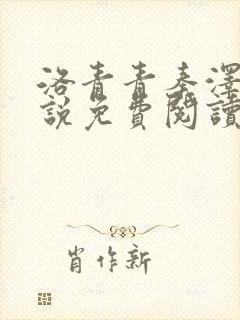 洛青青秦澤
說免費閱讀
肖作新